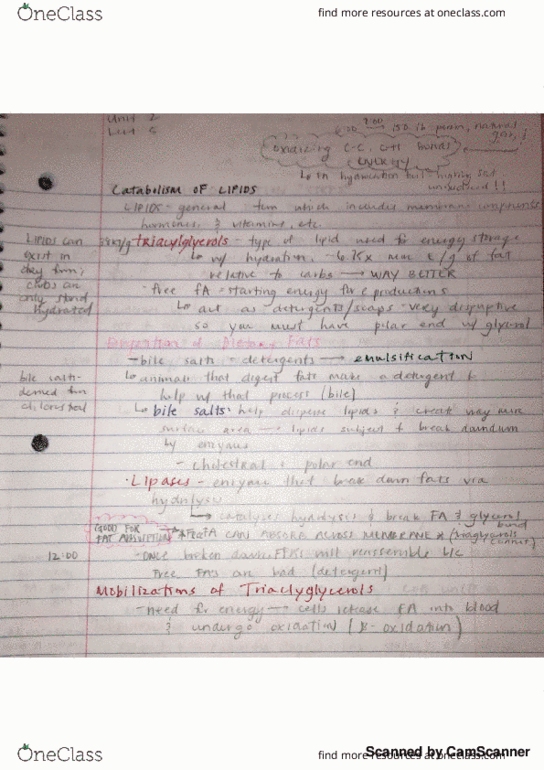 OneClass
find more resources at oneclass.com
Unit 2
150 lb person, natural
oxidizing C-C, C-H bonds
Catabolism OF LIPIDS
LIPIDS - general term which includes membrane components
hormones, & vitamins, etc.
LIPIDS can
exist in
dry form;
carbs can
only stored
hydrated
triacylglycerols - type of lipid used for energy storage
w/ hydration, ~6.75x more E/g of fat
relative to carbs → WAY BETTER
- free FA = starting energy for E productions
↳ act as detergents/soaps - very disruptive
so you must have polar end w/ glycerol
Digestion of Dietary Fats
- bile salts = detergents → emulsification
bile salts -
derived from
cholesterol
↳ animals that digest fats make a detergent to
help w/ that process (bile)
↳ bile salts: help disperse lipids & create way more
surface area → lipids subject to breakdown
by enzymes
- cholesterol + polar end
· Lipases - enzyme that break down fats via
hydrolysis
↳ catalyzes hydrolysis & break FA & glycerol
bond
GOOD FOR
FAT ABSORPTION
CAN ABSORB ACROSS MEMBRANE * (triaglycerols
cannot)
12:00
- once broken down, FFAs will reassemble b/c
free FAs are bad (detergent)
Mobilizations of Triaclyglycerols
- need for energy → cells release FA into blood
& undergo oxidation (β-oxidation)
OneClass
find more resources at oneclass.com
Scanned by CamScanner